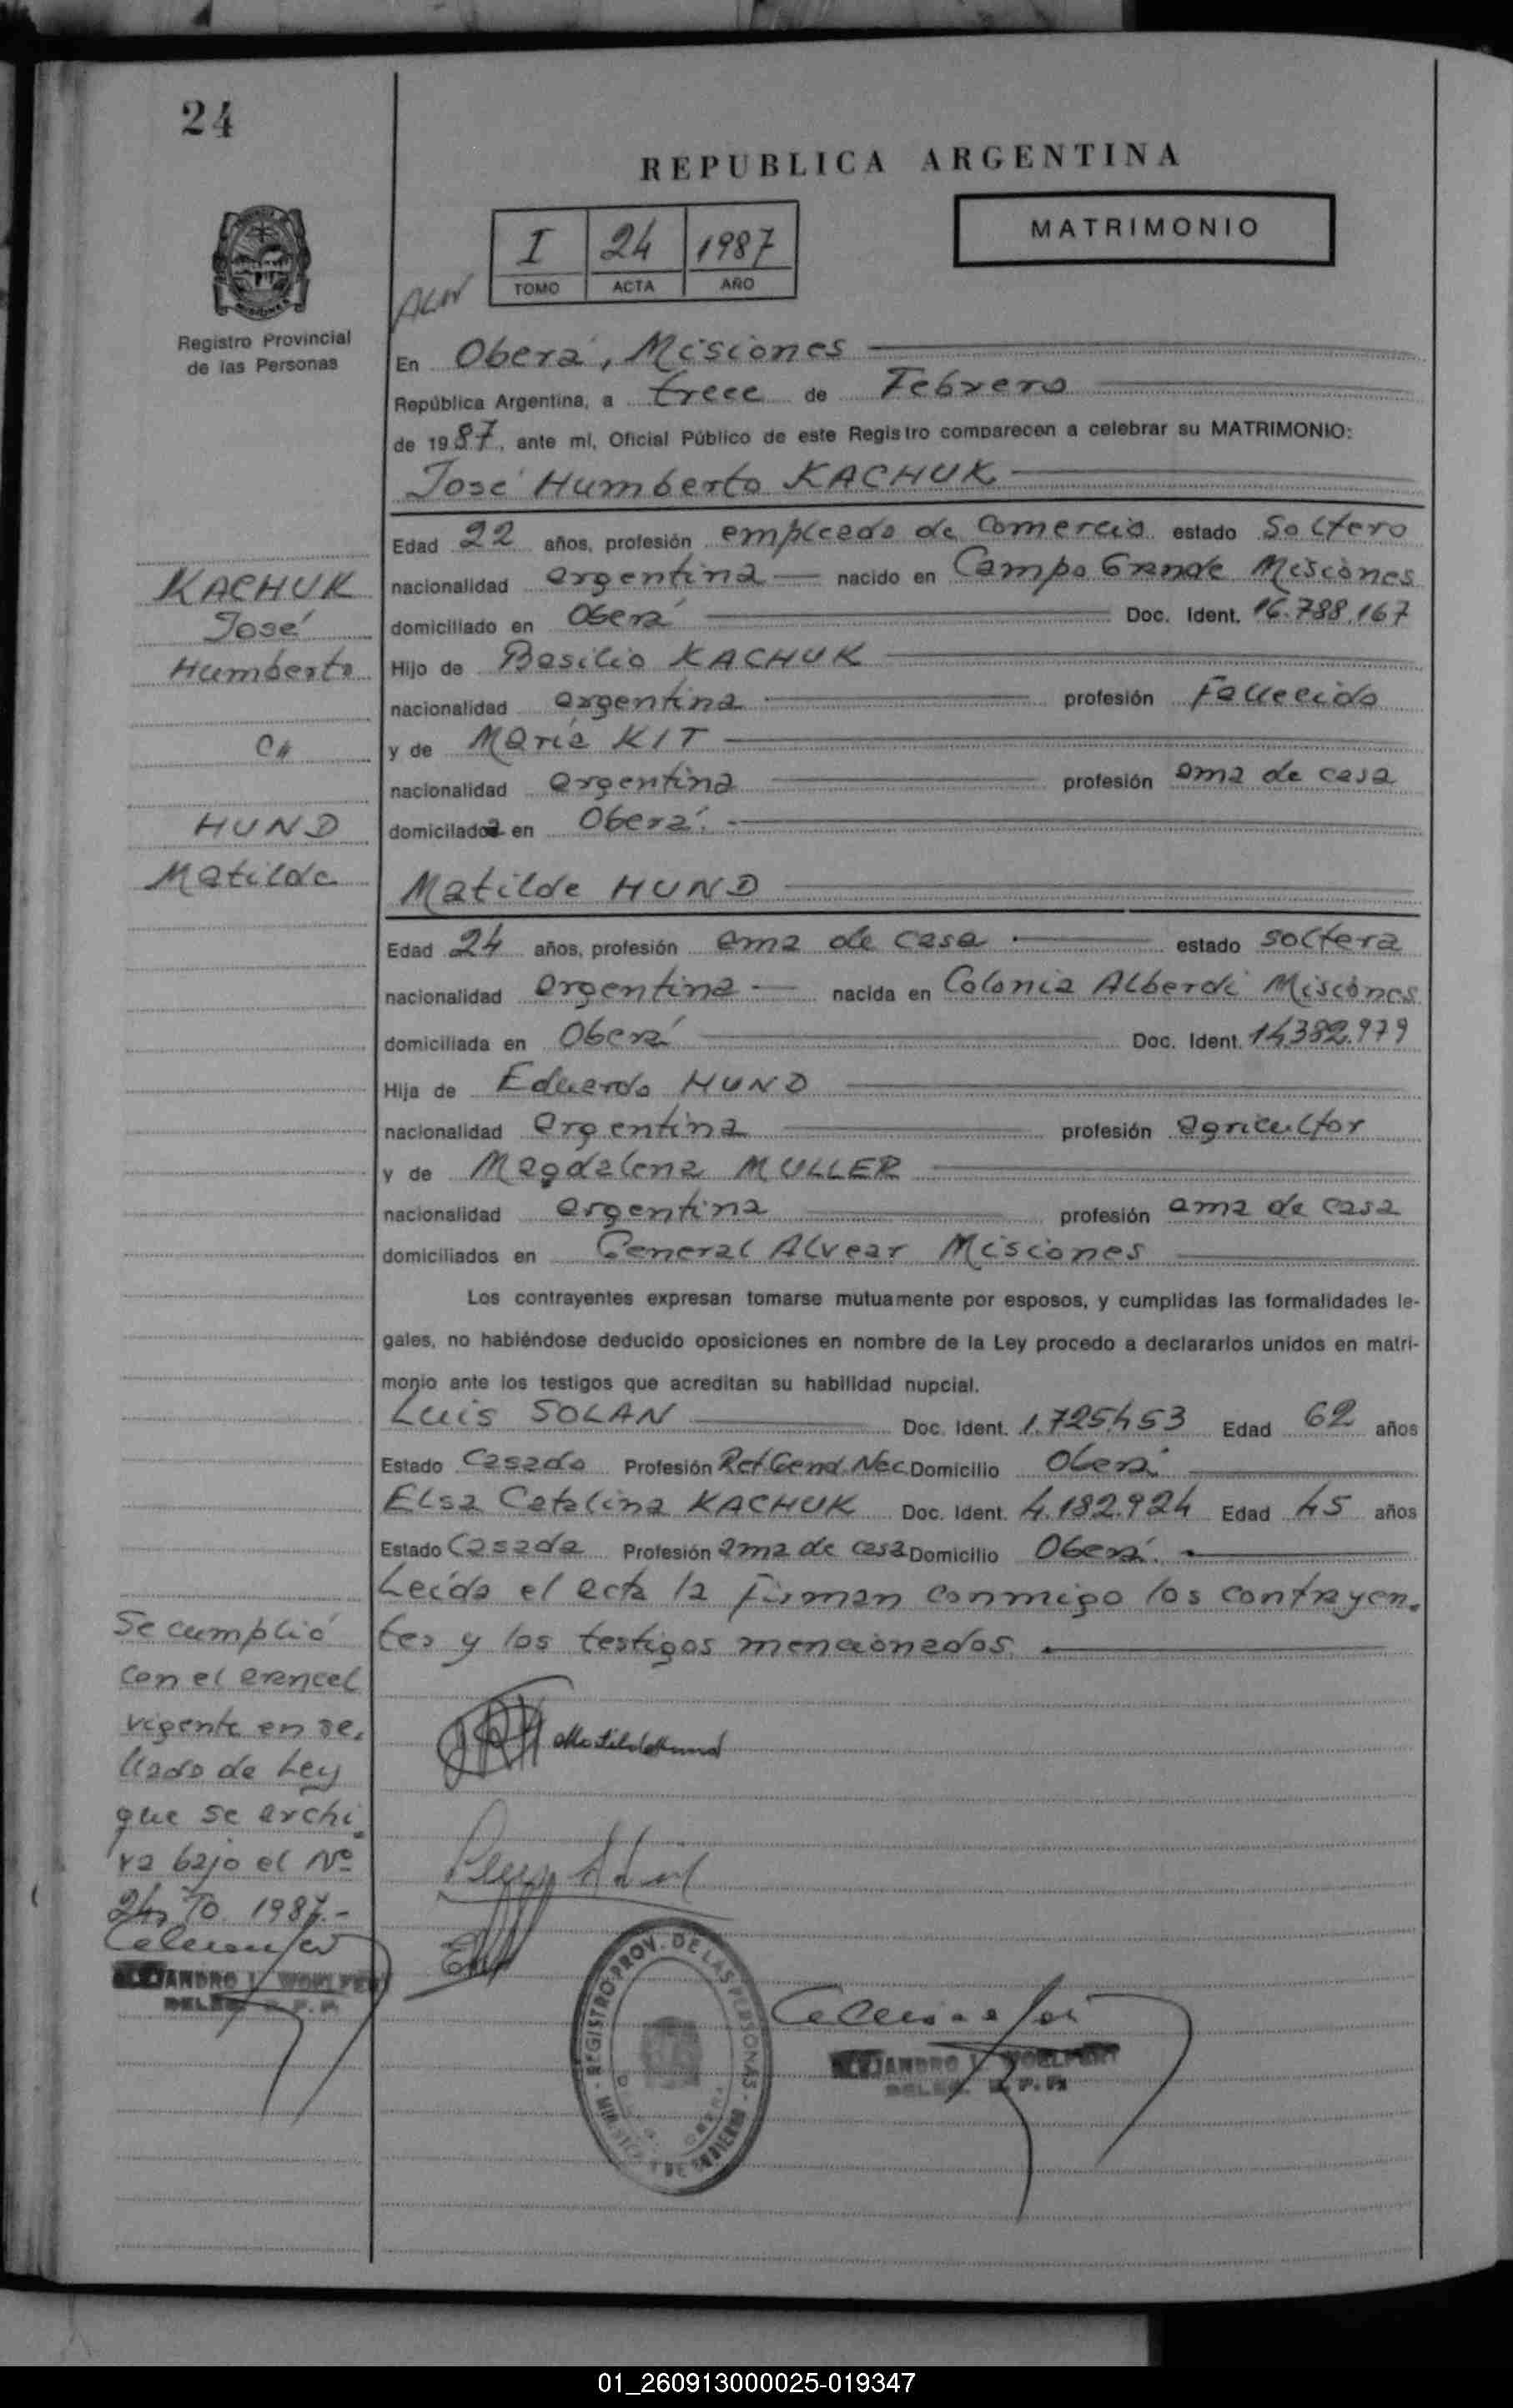 24
REPUBLICA ARGENTINA
MATRIMONIO
I 24 1987
TOMO ACTA AÑO
Registro Provincial
de las Personas
En Oberá, Misiones
República Argentina, a trece de Febrero
de 1987, ante mí, Oficial Público de este Registro comparecen a celebrar su MATRIMONIO:
José Humberto KACHUK
Edad 22 años, profesión empleado de Comercio estado Soltero
nacionalidad argentina nacido en Campo Grande Misiones
domiciliado en Oberá Doc. Ident. 16.788.167
Hijo de Basilio KACHUK
nacionalidad argentina profesión Fallecido
y de María KIT
nacionalidad argentina profesión ama de casa
domicilada en Oberá.
KACHUK
José
Humberto
HUND
Matilde
Matilde HUND
Edad 24 años, profesión ama de casa estado soltera
nacionalidad argentina nacida en Colonia Alberdi Misiones
domiciliada en Oberá Doc. Ident. 14.382.979
Hija de Eduardo HUND
nacionalidad argentina profesión agricultor
y de Magdalena MULLER
nacionalidad argentina profesión ama de casa
domiciliados en General Alvear Misiones
Los contrayentes expresan tomarse mutuamente por esposos, y cumplidas las formalidades le-
gales, no habiéndose deducido oposiciones en nombre de la Ley procedo a declararlos unidos en matri-
monio ante los testigos que acreditan su habilidad nupcial.
Luis SOLAN Doc. Ident. 1.725.453 Edad 62 años
Estado Casado Profesión Ret. Gend. Nac. Domicilio Oberá
Elsa Catalina KACHUK Doc. Ident. 4.182.924 Edad 45 años
Estado Casada Profesión ama de casa Domicilio Oberá.
Leída el acta la firman conmigo los contrayen-
tes y los testigos mencionados.
Se cumplió
con el arancel
vigente en se-
llado de Ley
que se archi-
va bajo el Nº
24, To. 1987.-
Matilde Hund
ALEJANDRO I. WOELFERT
DELEG. R. P. P.
REGISTRO PROV. DE LAS PERSONAS
MINISTERIO DE GOBIERNO
ALEJANDRO I. WOELFERT
DELEG. R. P. P.
01_260913000025-019347